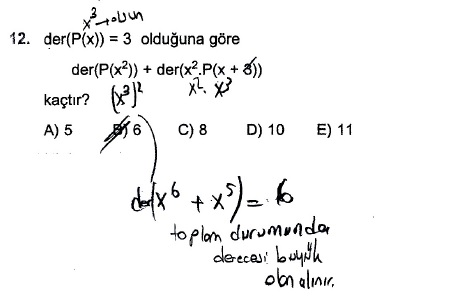 x³→olsun
12. der(P(x)) = 3 olduğuna göre
der(P(x²)) + der(x².P(x + 3))
x². x³
kaçtır? (x³)²
A) 5 B) 6 C) 8 D) 10 E) 11
der(x⁶ + x⁵) = 6
toplam durumunda
derecesi büyük
olan alınır.